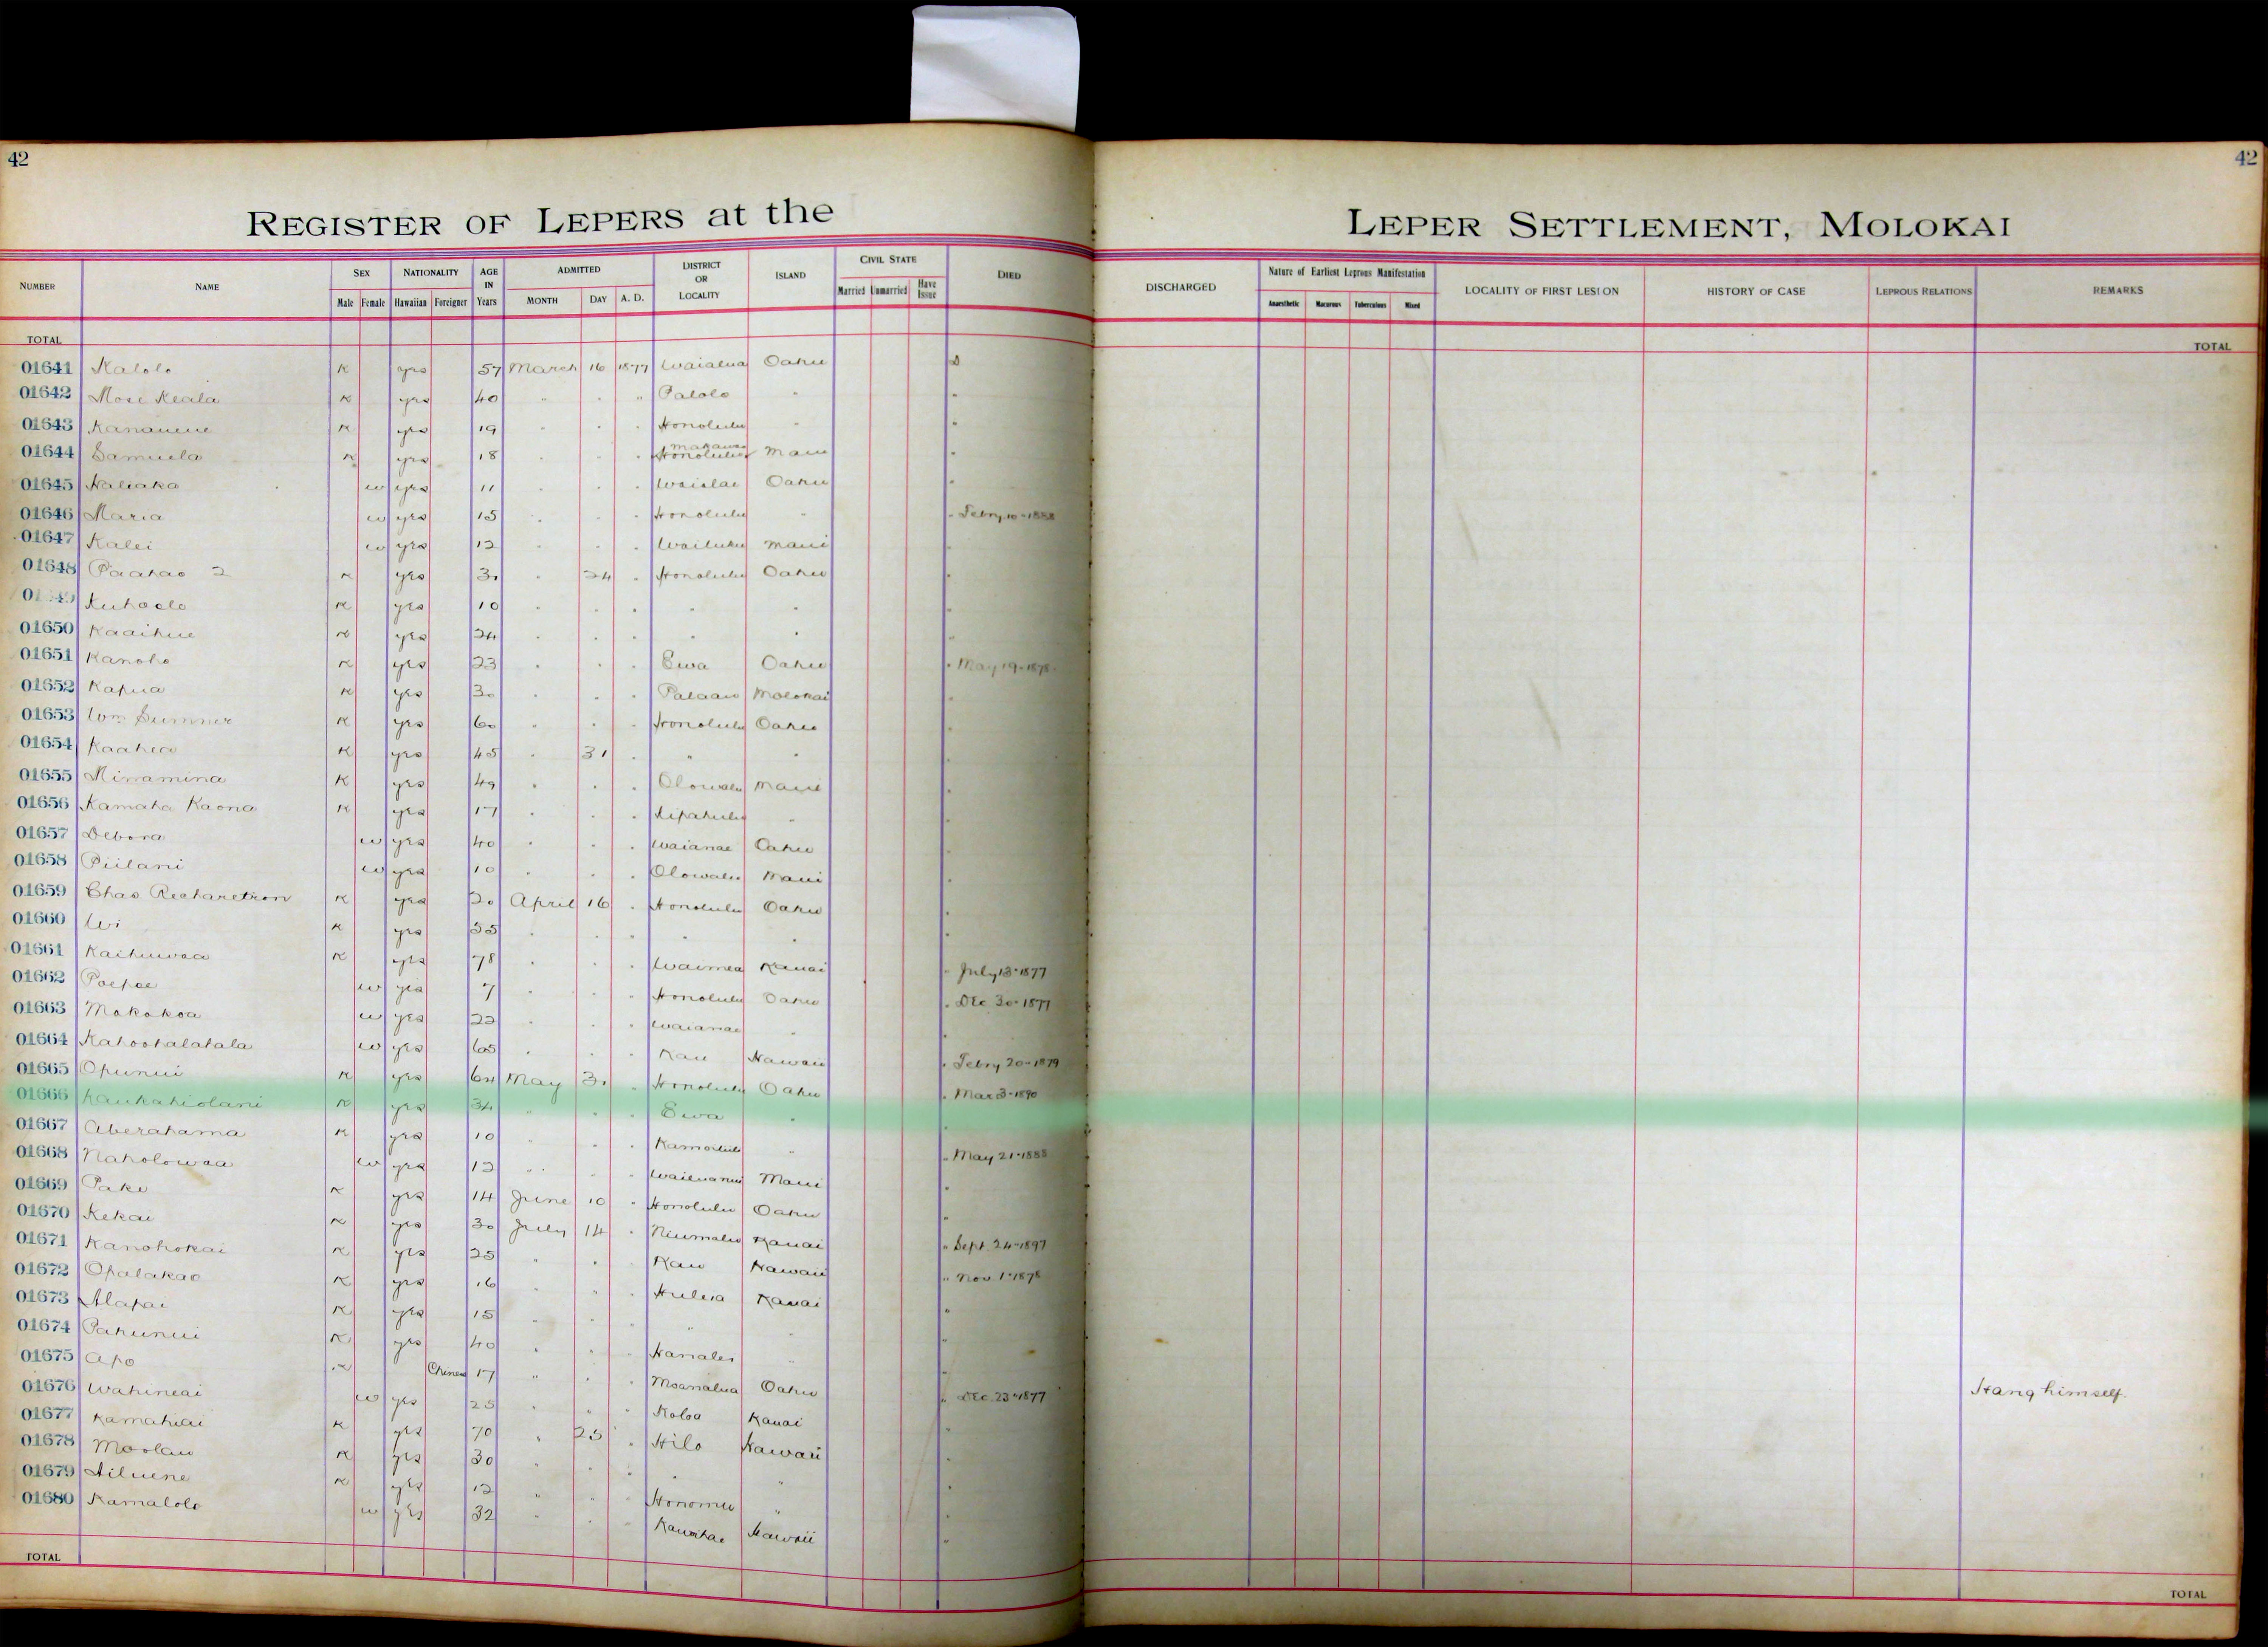 42
42
REGISTER OF LEPERS at the LEPER SETTLEMENT, MOLOKAI
NUMBER NAME SEX NATIONALITY AGE IN Years ADMITTED DISTRICT OR LOCALITY ISLAND CIVIL STATE DIED DISCHARGED Nature of Earliest Leprous Manifestation LOCALITY OF FIRST LESION HISTORY OF CASE LEPROUS RELATIONS REMARKS
Male Female Hawaiian Foreigner MONTH DAY A. D. Married Unmarried Have Issue Anaesthetic Macurous Tuberculous Mixed
TOTAL TOTAL
01641 Kalolo K yes 57 March 16 1877 Waialua Oahu D
01642 Mose Keala K yes 40 " " " Palolo " "
01643 Kananene K yes 19 " " " Honolulu " "
01644 Samuela K yes 18 " " " Honolulu Makawao Maui "
01645 Naliaka w yes 11 " " " Waialae Oahu "
01646 Maria w yes 15 " " " Honolulu " " Febry 10-1888
01647 Kalei w yes 12 " " " Wailuku Maui "
01648 Paahao 2 K yes 30 " 24 " Honolulu Oahu "
Kuhaelo K yes 10 " " " " " "
01650 Kaaihue K yes 24 " " " " " "
01651 Kanoho K yes 23 " " " Ewa Oahu " May 19-1878
01652 Kapua K yes 30 " " " Palaau Molokai "
01653 Wm Sumner K yes 60 " " " Honolulu Oahu "
01654 Kaahea K yes 45 " 31 " " " "
01655 Minamina K yes 49 " " " Olowalu Maui "
01656 Kamaha Kaona K yes 17 " " " Kipahulu " "
01657 Debora w yes 40 " " " Waianae Oahu "
01658 Piilani w yes 10 " " " Olowalu Maui "
01659 Chas Richardson K yes 20 April 16 " Honolulu Oahu "
01660 Wi K yes 55 " " " " " "
01661 Kaihuwaa K yes 78 " " " Waimea Kauai " July 13-1877
01662 Poepoe w yes 7 " " " Honolulu Oahu " Dec 30-1877
01663 Makakoa w yes 22 " " " Waianae " "
01664 Kahoohalahala w yes 65 " " " Kau Hawaii " Febry 20-1879
01665 Opunui K yes 64 May 31 " Honolulu Oahu " Mar 3-1890
01666 Kaukahiolani K yes 34 " " " Ewa " "
01667 Aberahama K yes 10 " " " Kamoiliili " " May 21-1888
01668 Naholowaa w yes 12 " " " Wailuanui Maui "
01669 Pake K yes 14 June 10 " Honolulu Oahu "
01670 Kekai K yes 30 July 14 " Niumalu Kauai " Sept 24-1897
01671 Kanohokai K yes 25 " " " Kau Hawaii " Nov 1-1878
01672 Opalakao K yes 16 " " " Huleia Kauai "
01673 Alapai K yes 15 " " " " " "
01674 Pahunui K yes 40 " " " Hanalei " "
01675 Apo K Chinese 17 " " " Moanalua Oahu " Dec 23-1877 Hang himself.
01676 Wahineai w yes 25 " " " Koloa Kauai "
01677 Kamahiai K yes 70 " 25 " Hilo Hawaii "
01678 Moolau K yes 30 " " " " " "
01679 Ailuene K yes 12 " " " Honomu " "
01680 Kamalolo w yes 32 " " " Kawaihae Hawaii "
TOTAL TOTAL